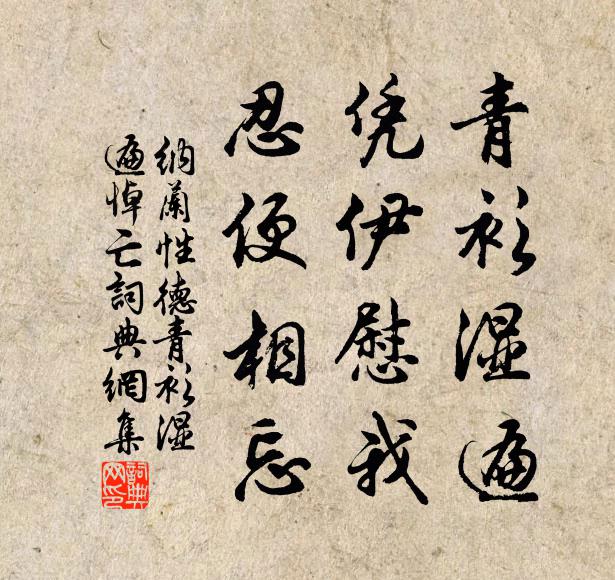 青衫湿遍
凭伊慰我
忍便相忘
納蘭性德青衫湿
遍悼亡詞典網集
詞典网印